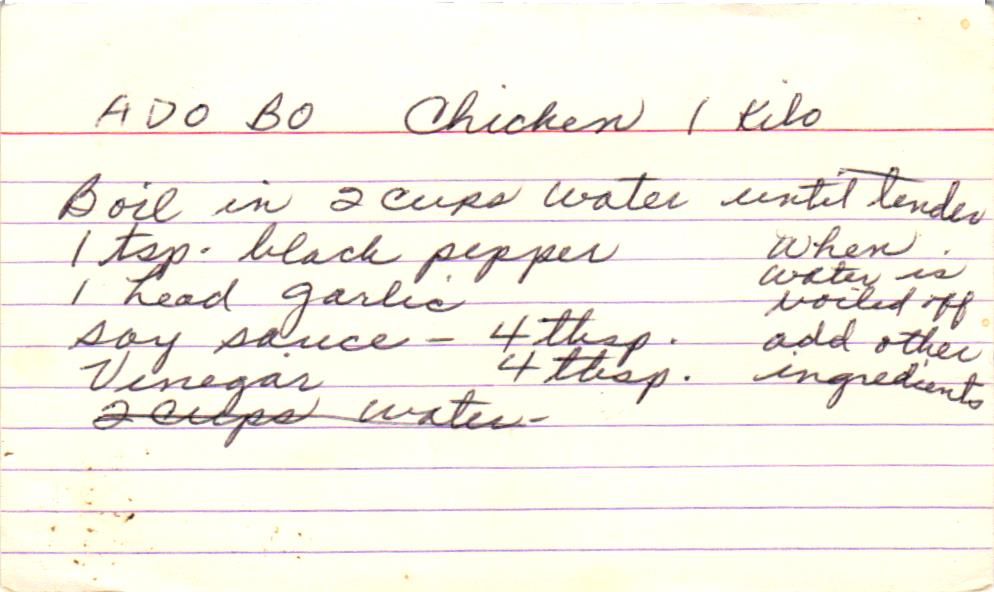 ADO BO Chicken 1 Kilo
Boil in 2 cups water until tender
1 tsp. black pepper
1 head garlic
soy sauce - 4 tbsp.
Vinegar 4 tbsp.
2 cups water-
When
water is
boiled off
add other
ingredients